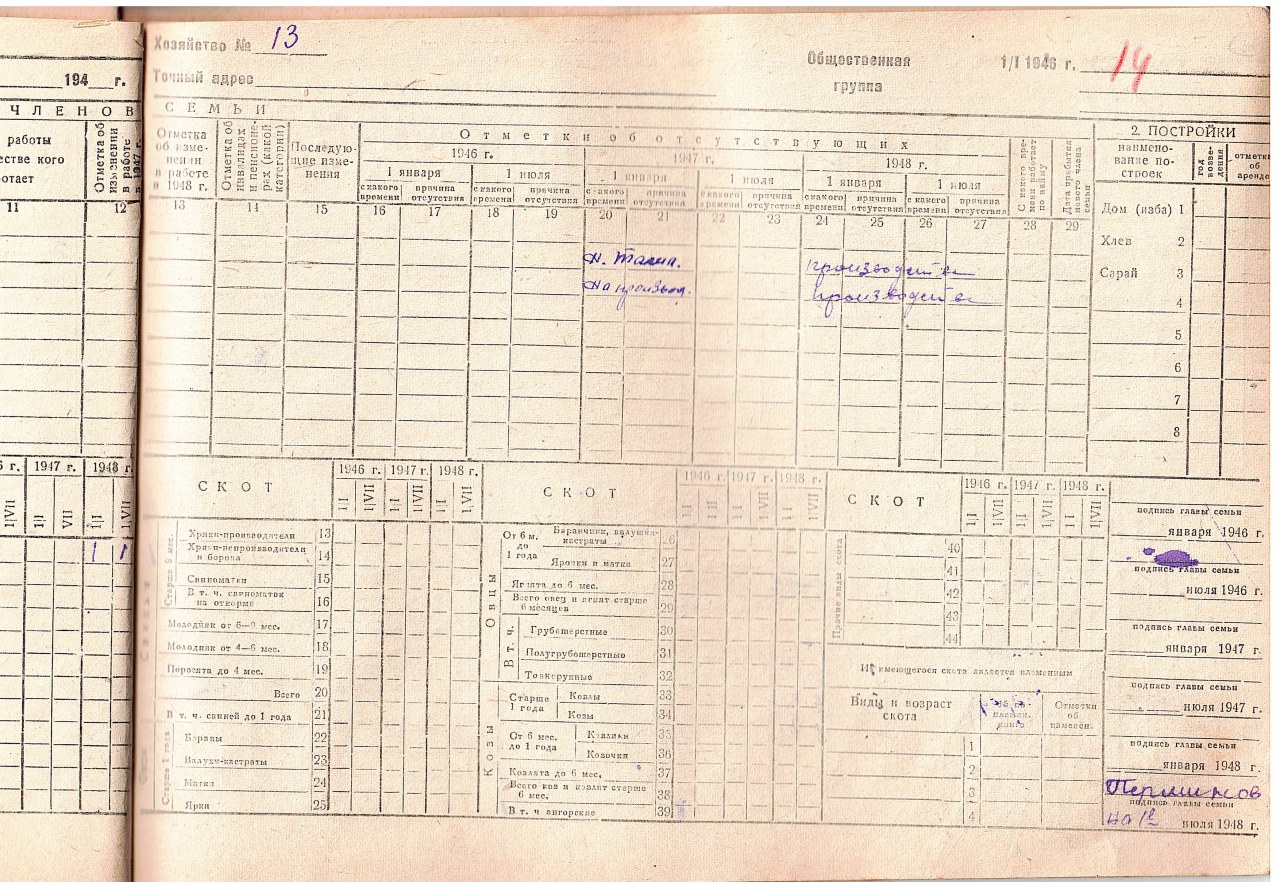 Хозяйство № 13
Точный адрес
Общественная группа
1/I 1946 г. 14
194 г.
ЧЛЕНОВ
СЕМЬИ
работы
естве кого
отает
Отметка об изменении в работе в 1947 г.
11
12
Отметка об изменении в работе в 1948 г.
Отметка об инвалидах и пенсионерах (какой категории)
Последующие изменения
Отметки об отсутствующих
1946 г.
1947 г.
1948 г.
1 января
1 июля
1 января
1 июля
1 января
1 июля
с какого времени
причина отсутствия
с какого времени
причина отсутствия
с какого времени
причина отсутствия
с какого времени
причина отсутствия
с какого времени
причина отсутствия
с какого времени
причина отсутствия
С какого времени работает по найму
Дата прибытия нового члена семьи
13 14 15 16 17 18 19 20 21 22 23 24 25 26 27 28 29
производстве
производстве
2. ПОСТРОЙКИ
наименование построек
год возведения
отметки об аренде
Дом (изба) 1
Хлев 2
Сарай 3
4
5
6
7
8
6 г. 1947 г. 1948 г.
1/VII 1/I VII 1/I 1/VII
1 1
СКОТ
1946 г. 1947 г. 1948 г.
1/I 1/VII 1/I 1/VII 1/I 1/VII
Старше 9 мес.
Хряки-производители 13
Хряки-непроизводители и борова 14
Свиноматки 15
В т. ч. свиноматок на откорме 16
Молодняк от 6—9 мес. 17
Молодняк от 4—6 мес. 18
Поросята до 4 мес. 19
Всего 20
В т. ч. свиней до 1 года 21
Старше 1 года
Бараны 22
Валухи-кастраты 23
Матки 24
Ярки 25
СКОТ
1946 г. 1947 г. 1948 г.
1/I 1/VII 1/I 1/VII 1/I 1/VII
Овцы
От 6 м. до 1 года
Баранчики, валушки-кастраты 26
Ярочки и матки 27
Ягнята до 6 мес. 28
Всего овец и ягнят старше 6 месяцев 29
В т. ч.
Грубошерстные 30
Полугрубошерстные 31
Тонкорунные 32
Козы
Старше 1 года
Козлы 33
Козы 34
От 6 мес. до 1 года
Козлики 35
Козочки 36
Козлята до 6 мес. 37
Всего коз и козлят старше 6 мес. 38
В т. ч ангорские 39
СКОТ
1946 г. 1947 г. 1948 г.
1/I 1/VII 1/I 1/VII 1/I 1/VII
Прочие виды скота
40
41
42
43
44
Из имеющегося скота является племенным
Виды и возраст скота
Отметки об изменен.
1
2
3
4
подпись главы семьи
января 1946 г.
подпись главы семьи
июля 1946 г.
подпись главы семьи
января 1947 г.
подпись главы семьи
июля 1947 г.
подпись главы семьи
января 1948 г.
Перминов
подпись главы семьи
июля 1948 г.